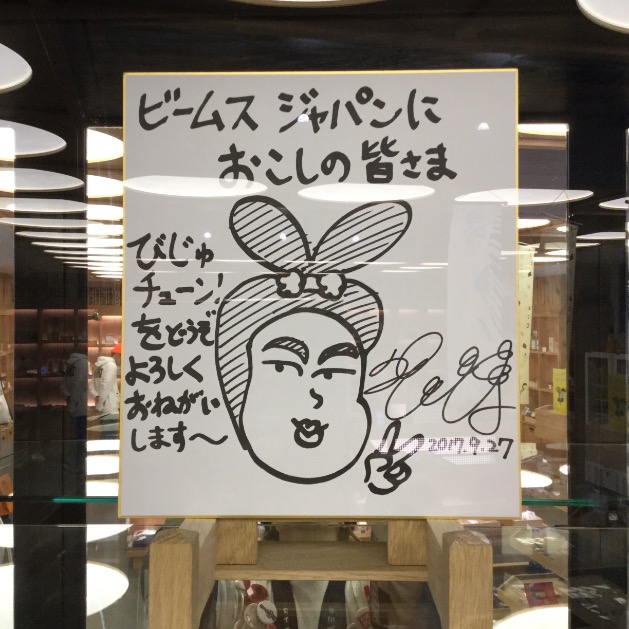 ビームス ジャパンに
おこしの皆さま
びじゅ
チューン!
をどうぞ
よろしく
おねがい
します〜
2017.9.27